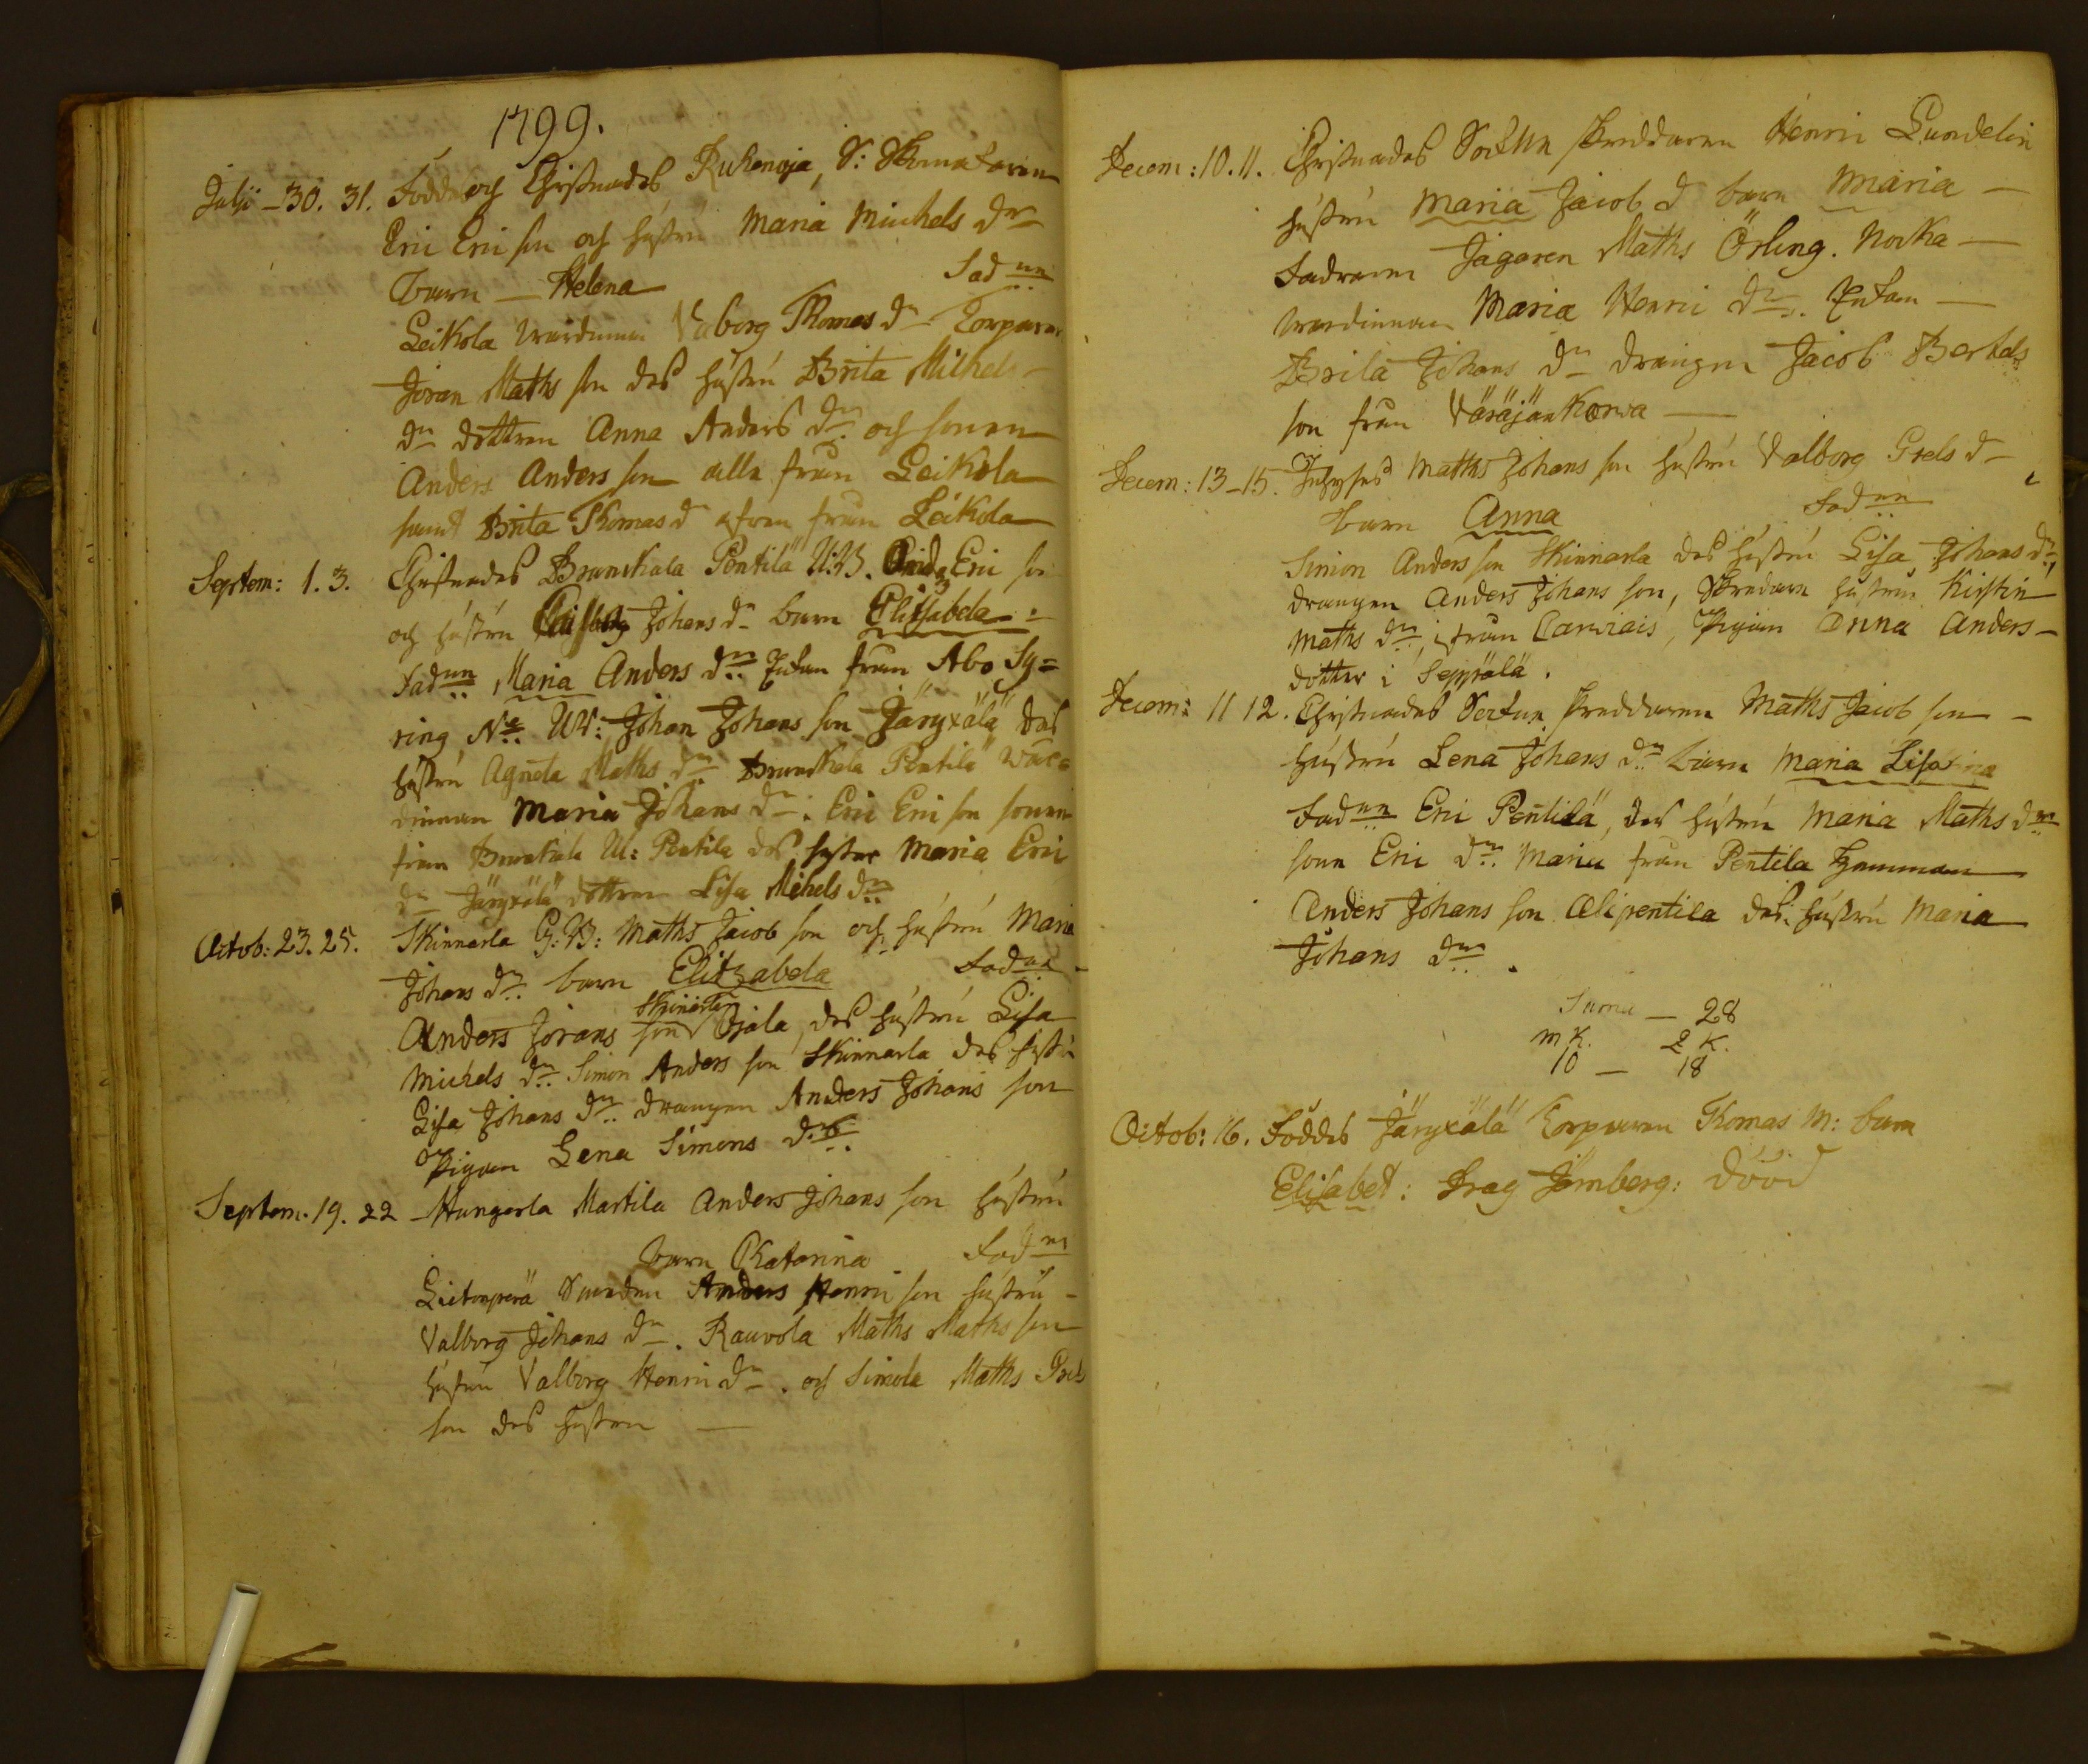 1799.
Julii - 30. 31. Födde och Christnades Rukenoja, S: Skomakaren
Eric Eric son och hustru Maria Michels dr
barn - Helena Fadun
Leikola wärdinnan Vaborg Thomas dr Torparen
Jöran Maths son des hustru Brita Michels
dr dottren Anna Anders dr och sonen
Anders Anders son alla från Leikola
samt Brita Thomas d äfven från Leikola
Septem: 1. 3. Christnades Brunskala Pentilä U:B. Eric Eric son
och hustru Johans dr barn Elitsabela
Fadun Maria Anders dr Enkan från Åbo Sy=
ring No Ur: Johan Johans son Järyxälä des
hustru Agneta Maths dr Brunskala Pentilä wär=
dinnan Maria Johans dr. Eric Eric son sonen
från Brunskala U: Pentila des syster Maria Eric
dr Järyxälä dottren Lisa Mihels dr
Octob: 23. 25. Skinnarla G:B: Maths Jacob son och hustru Maria
Johans dr. barn Elitzabela Fadun
Skinarla
Anders Jörans son Ojala, des hustru Lisa
Michels dr. Simon Anders son Skinnarla des hustru
Lisa Johans dr drängen Anders Johans son
Pigan Lena Simons dr.
Septem. 19. 22 Hungerla Martila Anders Johans son hustru
barn Chatarina Fadun
Lietenperä Anders Henric son hustru
Valborg Johans dr. Rauvola Maths Maths son
hustru Valborg Henric dr. och Simola Maths Grels
son des hustru
Decem: 10. 11. Christnades Sockn skreddaren Henric Lundelin
hustru Maria Jacob d barn Maria
Fadrarne Jägaren Maths Örling. Nocka
wärdinnan Maria Henric dr. Enkan
Brita Johans dr drängen Jacob Bertels
son från Väräjänkorva
Decem: 13-15. Inhyses Maths Johans son hustru Valborg Grels d
barn Anna Fadun
Simon Anders son Skinnarla des hustru Lisa Johans dr,
drängen Anders Johans son, hustrun Kirstin
Maths dr, från Carviais, Pigan Anna Anders-
dotter i Seppälä.
Decem: 11 12. Christnades Sockn skreddaren Maths Jacob son
hustru Lena Johans dr barn Maria Lisa
Fadun Eric Pentilä, des hustru Maria Maths dr
sonen Eric dr. Maria från Pentila
Anders Johans son Alipentila des hustru Maria
Johans dr.
Suma - 28
m K. 2 K.
10 - 18
Octob: 16. Föddes Järyxälä Torparen Thomas M: barn
Elisabet: Jernberg: dööd